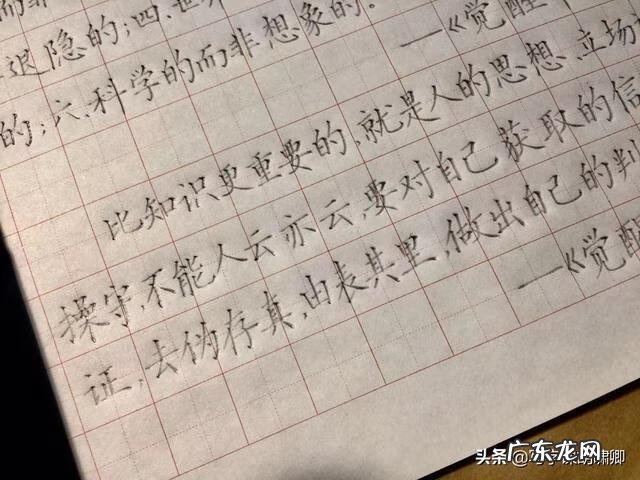 而非
退隐的;四.世界
的;六.科学的而非想象的。
—《觉醒年
比知识更重要的,就是人的思想.立场
操守,不能人云亦云,要对自己获取的信
证,去伪存真,由表其里,做出自己的判
—《觉醒
头条
广东龙网